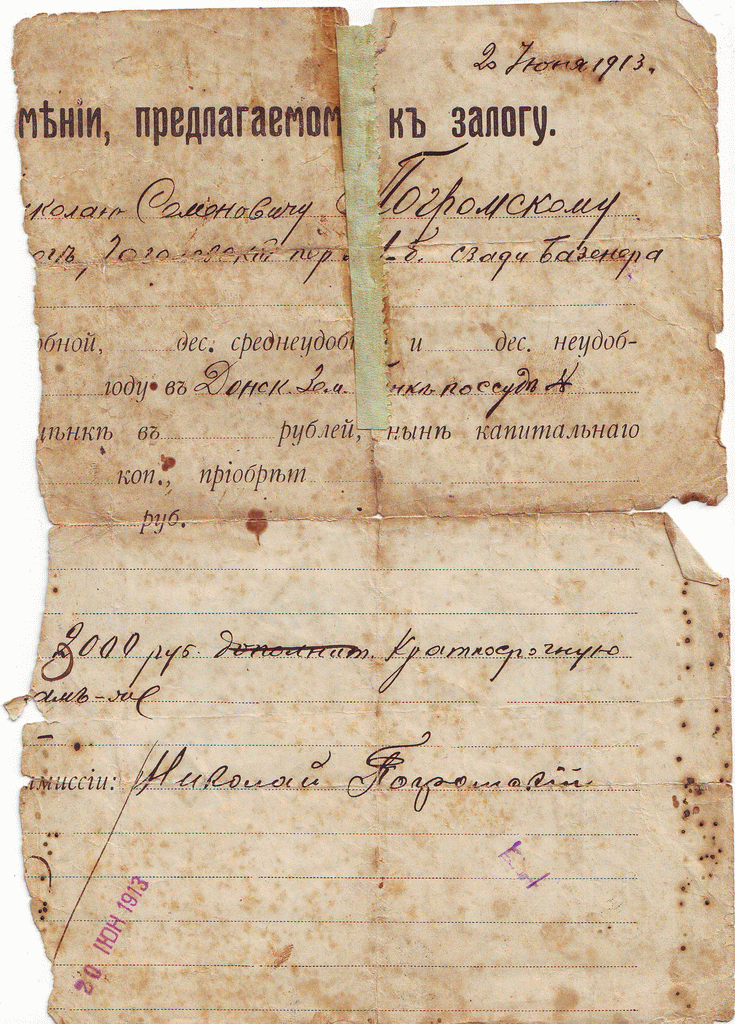 20 Июня 1913.
мѣніи, предлагаемом къ залогу.
колаю Семеновичу Погромскому
пер. сзади Базенера
обной, дес. среднеудоб и дес. неудоб-
году въ Донск. Зем. нкѣ по ссудѣ №
цѣнкѣ въ рублей, нынѣ капитальнаго
коп., пріобрѣт
руб.
3000 руб. дополнит. Краткосрочную
амъ-же
миссіи: Николай Погромскій
20 ІЮН 1913